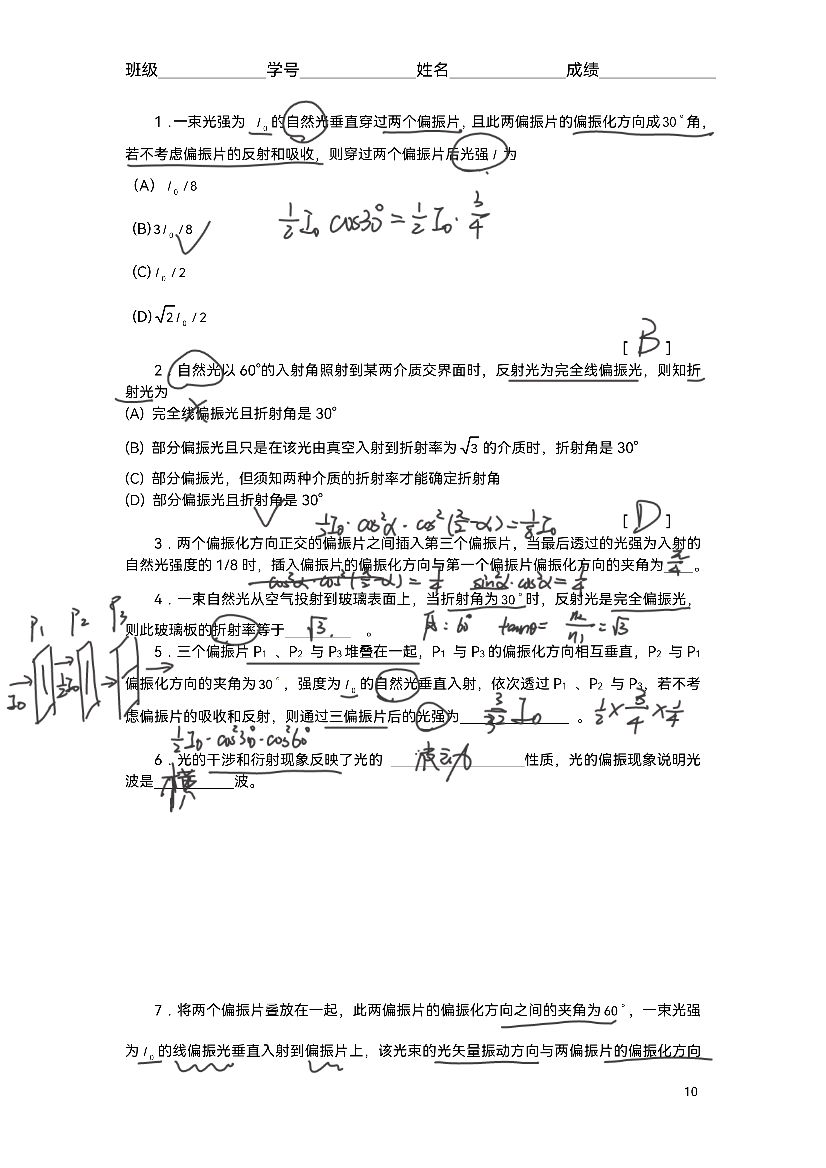 班级 学号 姓名 成绩
1.一束光强为 I₀ 的自然光垂直穿过两个偏振片，且此两偏振片的偏振化方向成30°角，
若不考虑偏振片的反射和吸收，则穿过两个偏振片后光强 I 为
(A) I₀ /8
(B)3I₀ /8
½I₀ cos30° = ½I₀ · 3/4
(C) I₀ /2
(D)√2 I₀ /2
[ B ]
2.自然光以60°的入射角照射到某两介质交界面时，反射光为完全线偏振光，则知折
射光为
(A) 完全线偏振光且折射角是30°
(B) 部分偏振光且只是在该光由真空入射到折射率为√3 的介质时，折射角是30°
(C) 部分偏振光，但须知两种介质的折射率才能确定折射角
(D) 部分偏振光且折射角是30°
[ D ]
½I₀·cos²α·cos²(π/2-α)=1/8 I₀
3.两个偏振化方向正交的偏振片之间插入第三个偏振片，当最后透过的光强为入射的
自然光强度的1/8时，插入偏振片的偏振化方向与第一个偏振片偏振化方向的夹角为 π/4 。
cos²α cos²(π/2-α)=1/4 sin²α·cos²α=1/4
4.一束自然光从空气投射到玻璃表面上，当折射角为30°时，反射光是完全偏振光，
则此玻璃板的折射率等于 √3 。
: 60° tanθ= n₂/n₁ =√3
P₁ P₂ P₃
I₀ ½I₀
5.三个偏振片P₁ 、P₂ 与P₃堆叠在一起，P₁ 与P₃的偏振化方向相互垂直，P₂ 与P₁
偏振化方向的夹角为30°，强度为 I₀ 的自然光垂直入射，依次透过P₁ 、P₂ 与P₃，若不考
虑偏振片的吸收和反射，则通过三偏振片后的光强为 3/32 I₀ 。 ½×3/4×1/4
½I₀·cos²30·cos²60°
6.光的干涉和衍射现象反映了光的 波动 性质，光的偏振现象说明光
波是 横 波。
7.将两个偏振片叠放在一起，此两偏振片的偏振化方向之间的夹角为60°，一束光强
为 I₀ 的线偏振光垂直入射到偏振片上，该光束的光矢量振动方向与两偏振片的偏振化方向
10